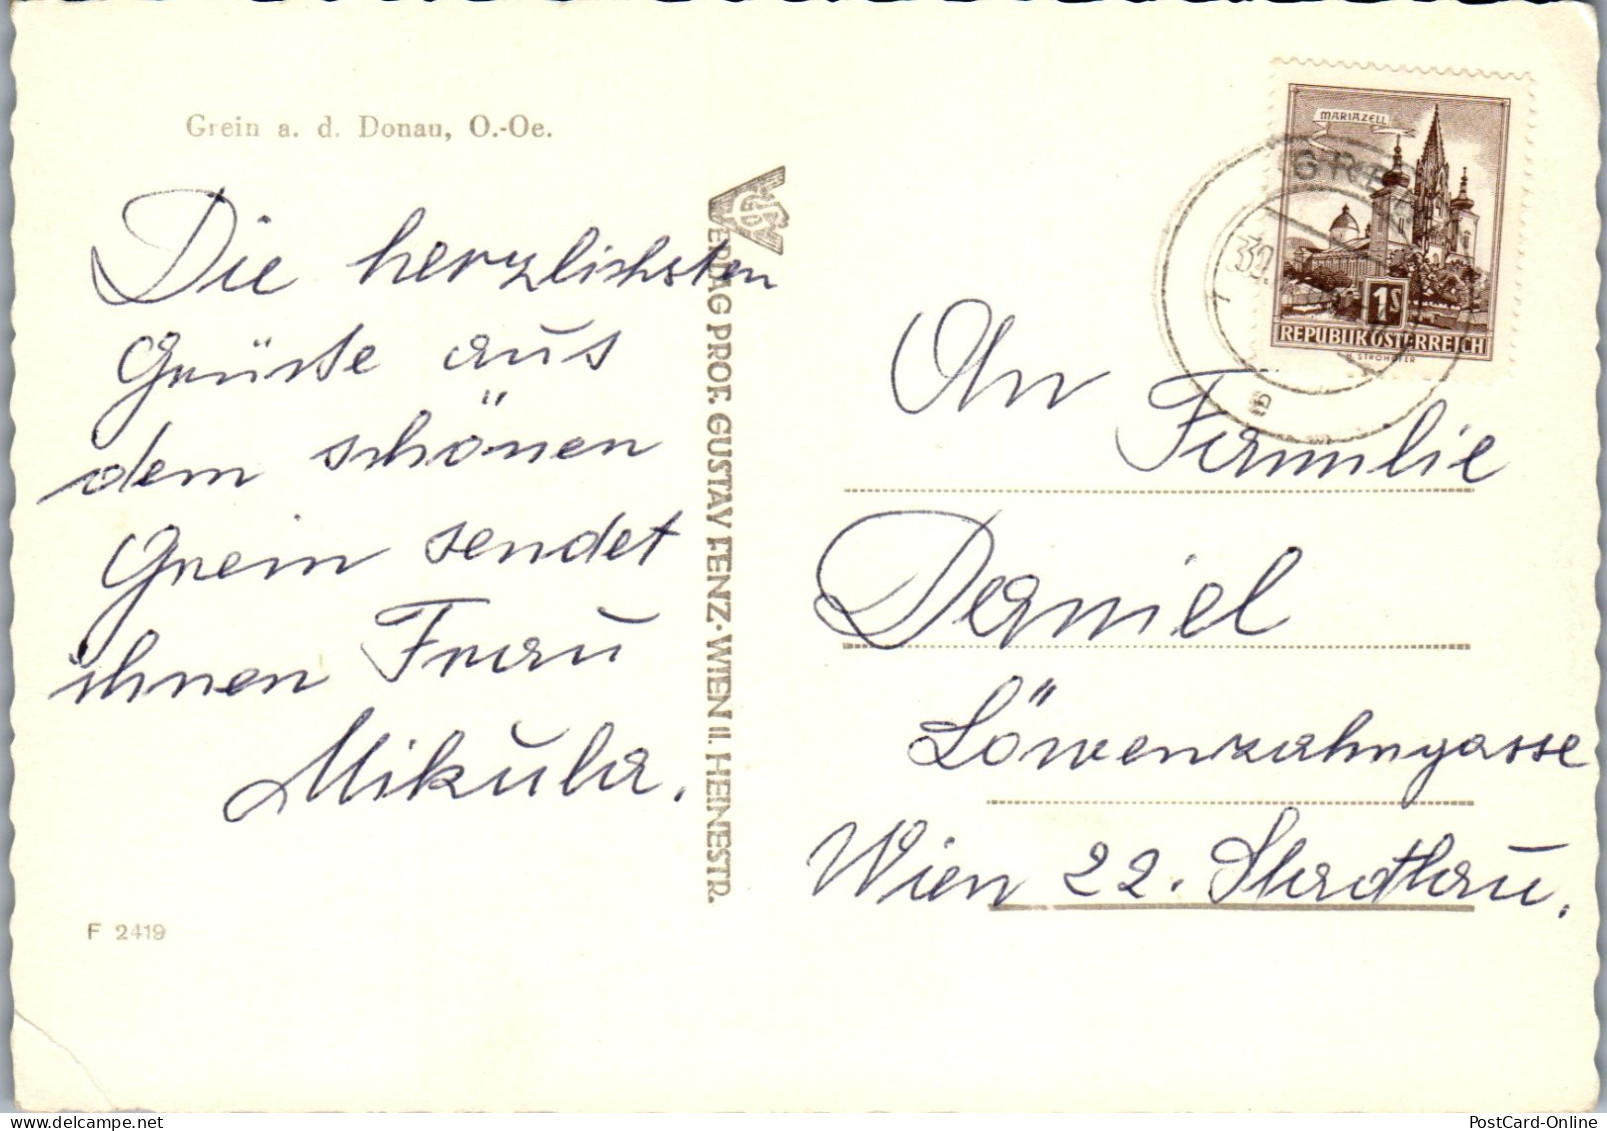 Grein a. d. Donau, O.-Oe.
Die herzlichsten
Grüsse aus
dem schönen
Grein sendet
ihnen Frau
Mikula.
F 2419
VERLAG PROF. GUSTAV FENZ · WIEN II. HEINESTR.
MARIAZELL
1S
REPUBLIK ÖSTERREICH
An
Familie
Daniel
Löwenzahngasse
Wien 22. Stadlau.
PostCard-Online